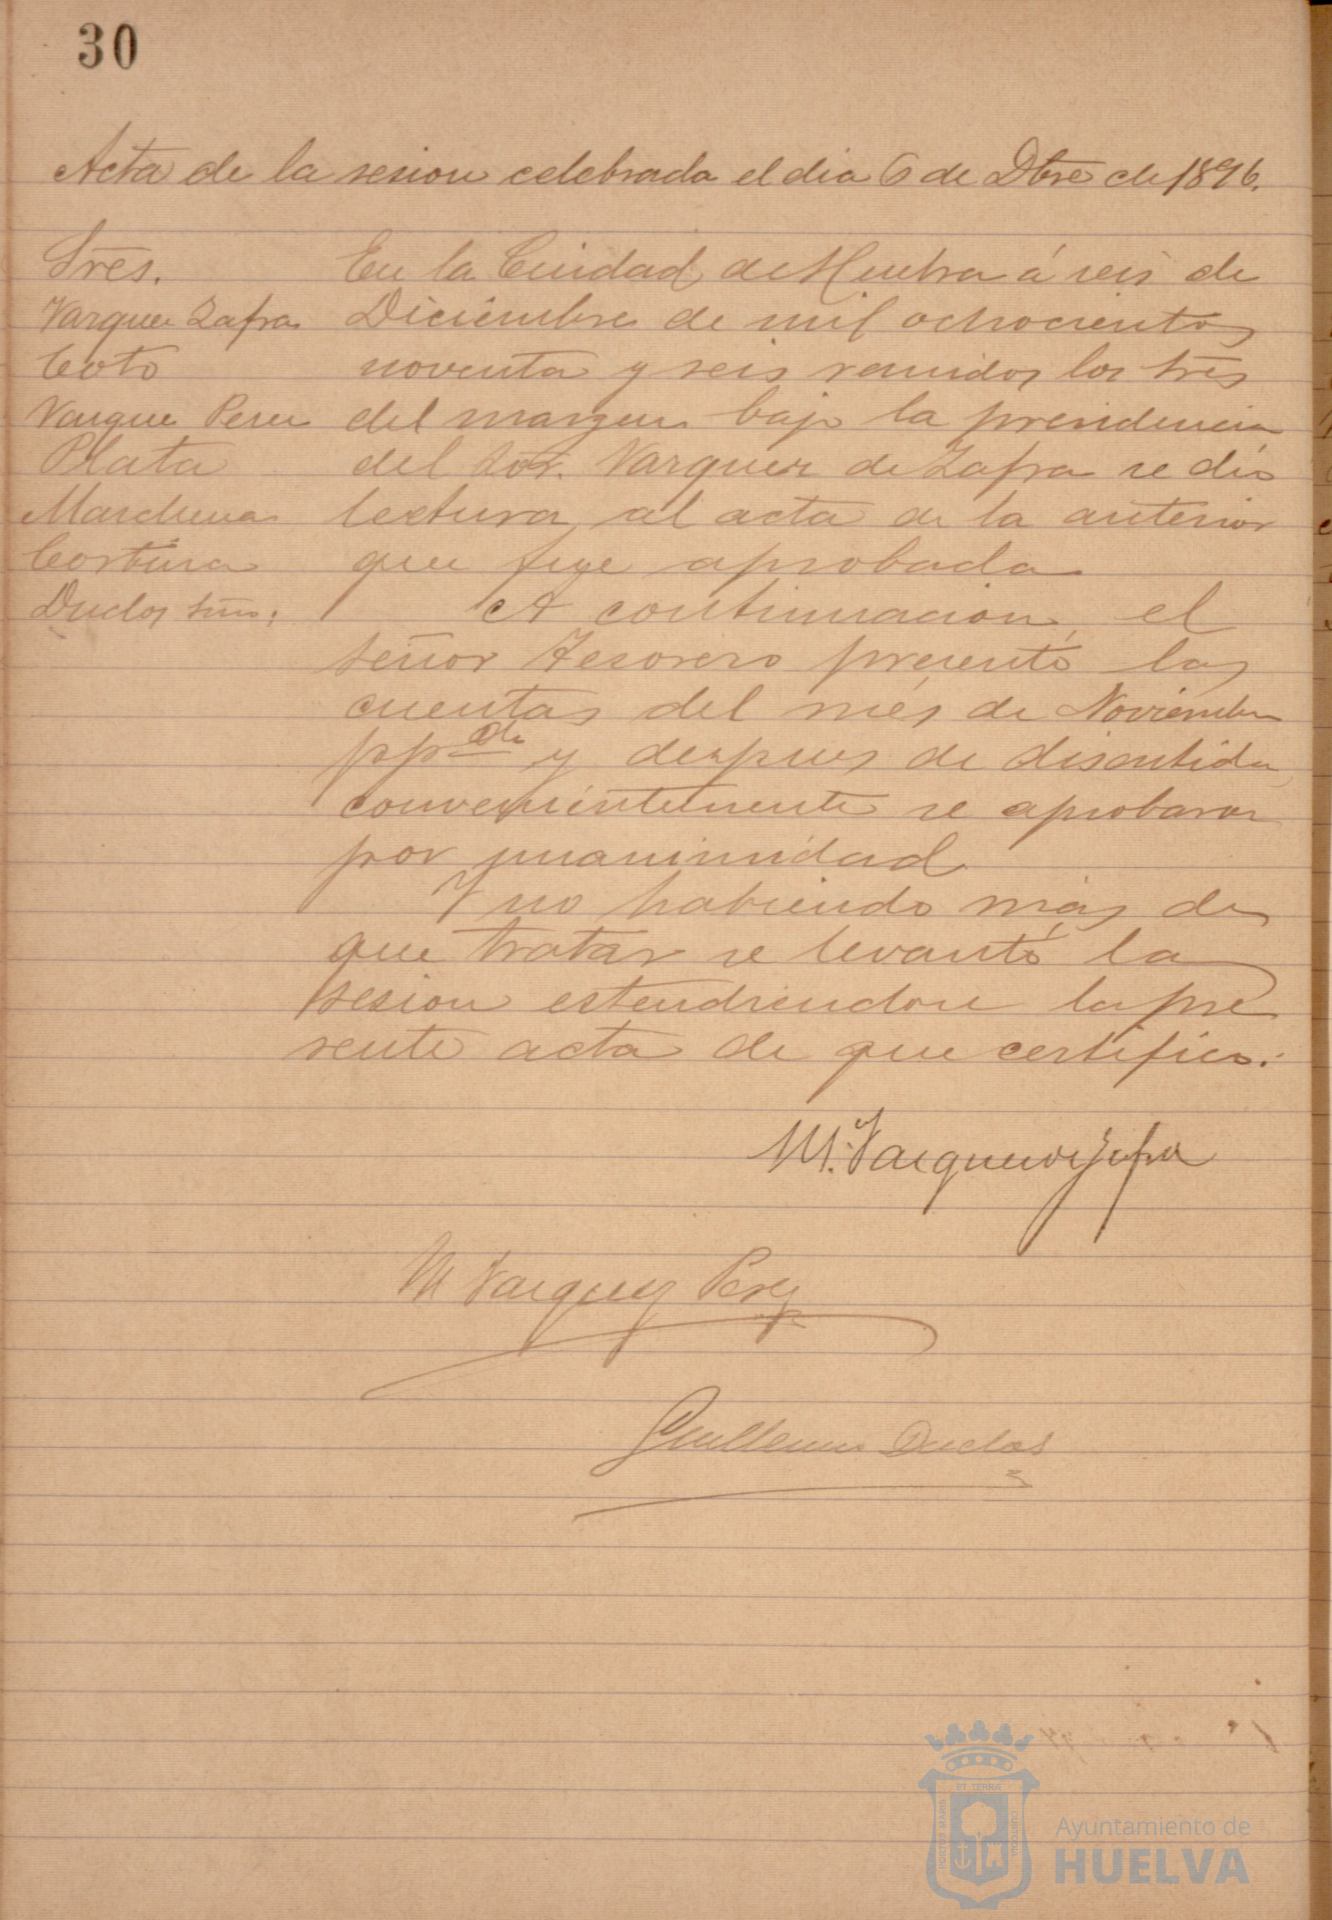 30
Acta de la sesion celebrada el dia 6 de Dbre de 1896.
Sres.
Vazquez Zafra
Coto
Vazquez Perez
Plata
Marchena
Cortina
Duclos
En la Ciudad de Huelva á seis de
Diciembre de mil ochocientos
noventa y seis reunidos los Sres
del margen bajo la presidencia
del Sor. Vazquez de Zafra se dió
lectura al acta de la anterior
que fue aprobada
A continuacion el
señor Tesorero presentó las
cuentas del més de Noviembre
ppdo y despues de discutidas
convenientemente se aprobaron
por unanimidad
Y no habiendo más de
que tratar se levantó la
sesion estendiendose la pre
sente acta de que certifico.
M. Vazquez de Zafra
M Vazquez Perez
Guillermo Duclos
PORTUS MARIS ET TERRAE CUSTODIA
Ayuntamiento de
HUELVA